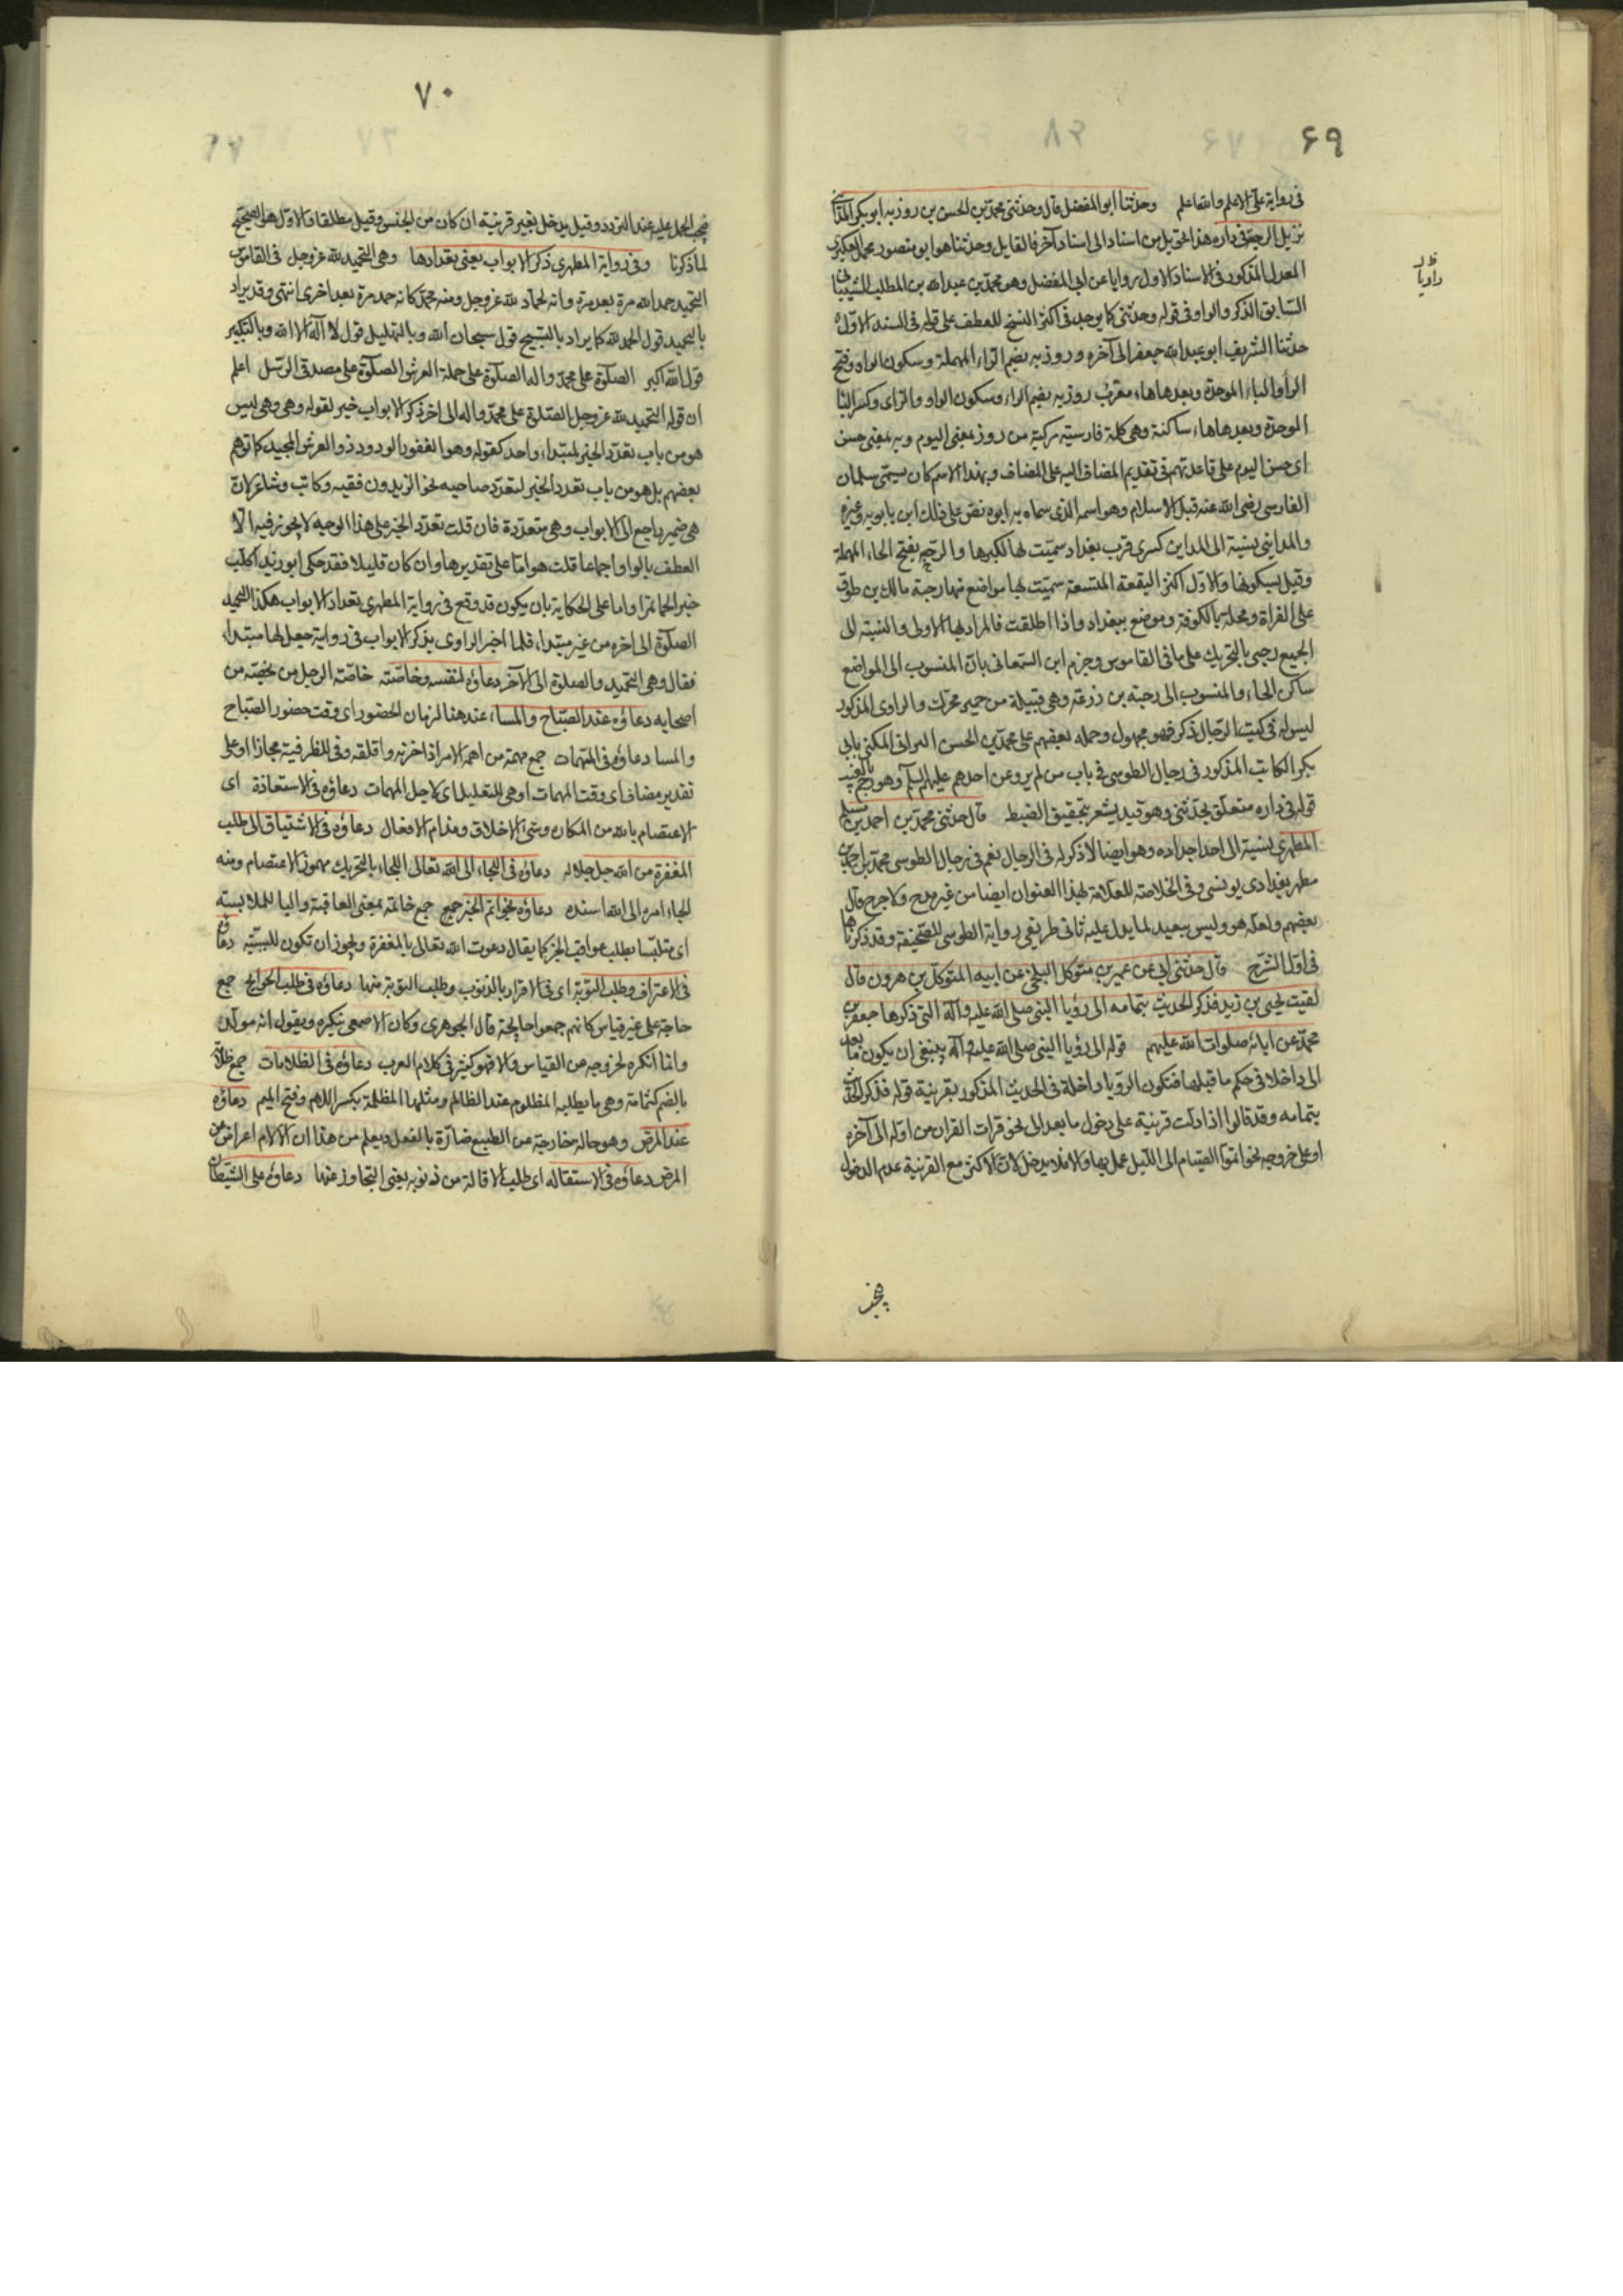 ۶۹
فى رواية على الاعلم والله اعلم وحدثنا ابو المفضل قال وحدثنى محمد بن الحسن بن روزبه ابو بكر المدائنى
نزيل الرحبة فى داره هذا تحويل من اسناد الى اسناد آخر فالقايل وحدثنا هو ابو منصور محمد العكبرى
المعدل المذكور فى الاسناد الاول روايا عن ابى المفضل وهو محمد بن عبد الله بن المطلب الشيبانى
السابق الذكر والواو فى قوله وحدثنى كما يوجد فى اكثر النسخ للعطف على قوله فى السند الاول
حدثنا الشريف ابو عبد الله جعفر الى آخره وروزبه بضم الراء المهملة وسكون الواو وفتح
الزاء والباء الموحدة وبعدها هاء معرب روزبه بضم الراء وسكون الواو والزاى وكسر البا
الموحدة وبعدها هاء ساكنة وهى كلمة فارسيه مركبة من روز بمعنى اليوم وبه بمعنى حسن
اى حسن اليوم على قاعدتهم فى تقديم المضاف اليه على المضاف وبهذا الاسم كان يسمى سلمان
الفارسى رضى الله عنه قبل الاسلام وهو اسمه الذى سماه به ابوه نص على ذلك ابن بابويه وغيره
والمداينى نسبة الى المداين كسرى قرب بغداد سميت لها لكبرها والرحبه بفتح الحاء المهملة
وقيل بسكونها والاول اكثر البقعة المتسعة سميت لها مواضع منها رحبة مالك بن طوق
على الفراة ومحلة بالكوفة وموضع ببغداد واذا اطلقت فالمراد بها الاولى والنسبة الى
الجميع رحبى بالتحريك على ما فى القاموس وجزم ابن السمعانى بان المنسوب الى المواضع
ساكن الحاء والمنسوب الى رحبه بن زرعة وهى قبيلة من حمير محرك والراوى المذكور
ليس له فى كتب الرجال ذكر فهو مجهول وحمله بعضهم على محمد بن الحسن البرانى المكنى بابى
بكر الكاتب المذكور فى رجال الطوسى فى باب من لم يرو عن احدهم عليهم السلم وهو رجم بالغيب
قوله فى داره متعلق بحدثنى وهو قيد يشعر بتحقيق الضبط قال حدثنى محمد بن احمد بن مسلم
المطهرى نسبة الى احد اجداده وهو ايضا لا ذكر له فى الرجال نعم فى رجال الطوسى محمد بن احمد بن
مطهر بغدادى يونسى وفى الخلاصة للعلامة بهذا العنوان ايضا من غير مدح ولا جرح قال
بعضهم ولعله هو وليس ببعيد لما يدل عليه ثانى طريقى رواية الطوسى للصحيفة وقد ذكرناها
فى اول الشرح قال حدثنى ابى عن عمير بن متوكل البلخى عن ابيه المتوكل بن هرون قال
لقيت يحيى بن زيد فذكر الحديث بتمامه الى رؤيا النبى صلى الله عليه وآله التى ذكرها جعفر بن
محمد عن ابائه صلوات الله عليهم قوله الى رؤيا النبى صلى الله عليه وآله ينبغى ان يكون ما بعد
الى داخلا فى حكم ما قبلها فتكون الرؤيا داخلة فى الحديث المذكور بقرينة قوله فذكر الحديث
بتمامه وقد قالوا اذا دلت قرينة على دخول ما بعد الى نحو قرات القران من اوله الى آخره
او على خروجه نحو اتموا الصيام الى الليل عمل بها والا فلا يدخل لان الاكثر مع القرينة عدم الدخول
۷۰
فيجب الحمل عليه عند التردد وقيل يدخل بغير قرينة ان كان من الجنس وقيل مطلقا والاول هو الصحيح
لما ذكرنا وفى رواية المطهرى ذكر الابواب يعنى تعدادها وهى التحميد لله عز وجل فى القاموس
التحميد حمد الله مرة بعد مرة وانه لحماد لله عز وجل ومنه محمد كانه حمد مرة بعد اخرى انتهى وقد يراد
بالتحميد قول الحمد لله كما يراد بالتسبيح قول سبحان الله وبالتهليل قول لا اله الا الله وبالتكبير
قول الله اكبر الصلوة على محمد واله الصلوة على حملة العرش الصلوة على مصدقى الرسل اعلم
ان قوله التحميد لله عز وجل الصلوة على محمد واله الى اخر ذكر الابواب خبر لقوله وهى وهى ليس
هو من باب تعدد الخبر لمبتداء واحد كقوله وهو الغفور الودود ذو العرش المجيد كما توهم
بعضهم بل هو من باب تعدد الخبر لتعدد صاحبه نحو الزيدون فقيه وكاتب وشاعر لان
هى ضمير راجع الى الابواب وهى متعددة فان قلت تعدد الخبر على هذا الوجه لا يجوز فيه الا
العطف بالواو اجماعا قلت هو اما على تقديرها وان كان قليلا فقد حكى ابو زيد اكلت
خبزا لحما تمرا واما على الحكاية بان يكون قد وقع فى رواية المطهرى تعداد الابواب هكذا التحميد
الصلوة الى اخره من غير مبتداء فلما اخبر الراوى بذكر الابواب فى رواية جعل لها مبتداء
فقال وهى التحميد والصلوة الى الآخر دعاؤه لنفسه وخاصته خاصة الرجل من يخصه من
اصحابه دعاؤه عند الصباح والمساء عند هنا لزمان الحضور اى وقت حضور الصباح
والمسا دعاؤه فى المهمات جمع مهمة من اهمه الامر اذا حزنه واقلقه وفى للظرفية مجازا او على
تقدير مضاف اى وقت المهمات او هى للتعليل اى لاجل المهمات دعاؤه فى الاستعاذة اى
الاعتصام بالله من المكاره وسىء الاخلاق ومذام الافعال دعاؤه فى الاشتياق الى طلب
المغفرة من الله جل جلاله دعاؤه فى اللجاء الى الله تعالى اللجاء بالتحريك مهموز الاعتصام ومنه
الجاء امره الى الله اسنده دعاؤه بخواتم الخير جمع خاتمة بمعنى العاقبة والبا للملابسته
اى متلبسا بطلب عواقب الخير كما يقال دعوت الله تعالى بالمغفرة ويجوز ان تكون للسببيه دعاؤه
فى الاعتراف وطلب التوبة اى فى الاقرار بالذنوب وطلب التوبة منها دعاؤه فى طلب الحوايج جمع
حاجة على غير قياس كانهم جمعوا حايجة قال الجوهرى وكان الاصمعى ينكره ويقول انه مولد
وانما انكره لخروجه عن القياس والا فهو كثير فى كلام العرب دعاؤه فى الظلامات جمع ظلامة
بالضم كثمامة وهى ما يطلبه المظلوم عند الظالم ومثلها المظلمة بكسر اللام وفتح الميم دعاؤه
عند المرض وهو حالة خارجة عن الطبيع ضارة بالفعل ويعلم من هذا ان الالام اعراض عن
المرض دعاؤه فى الاستقاله اى طلب الاقالة من ذنوبه يعنى التجاوز عنها دعاؤه على الشيطان